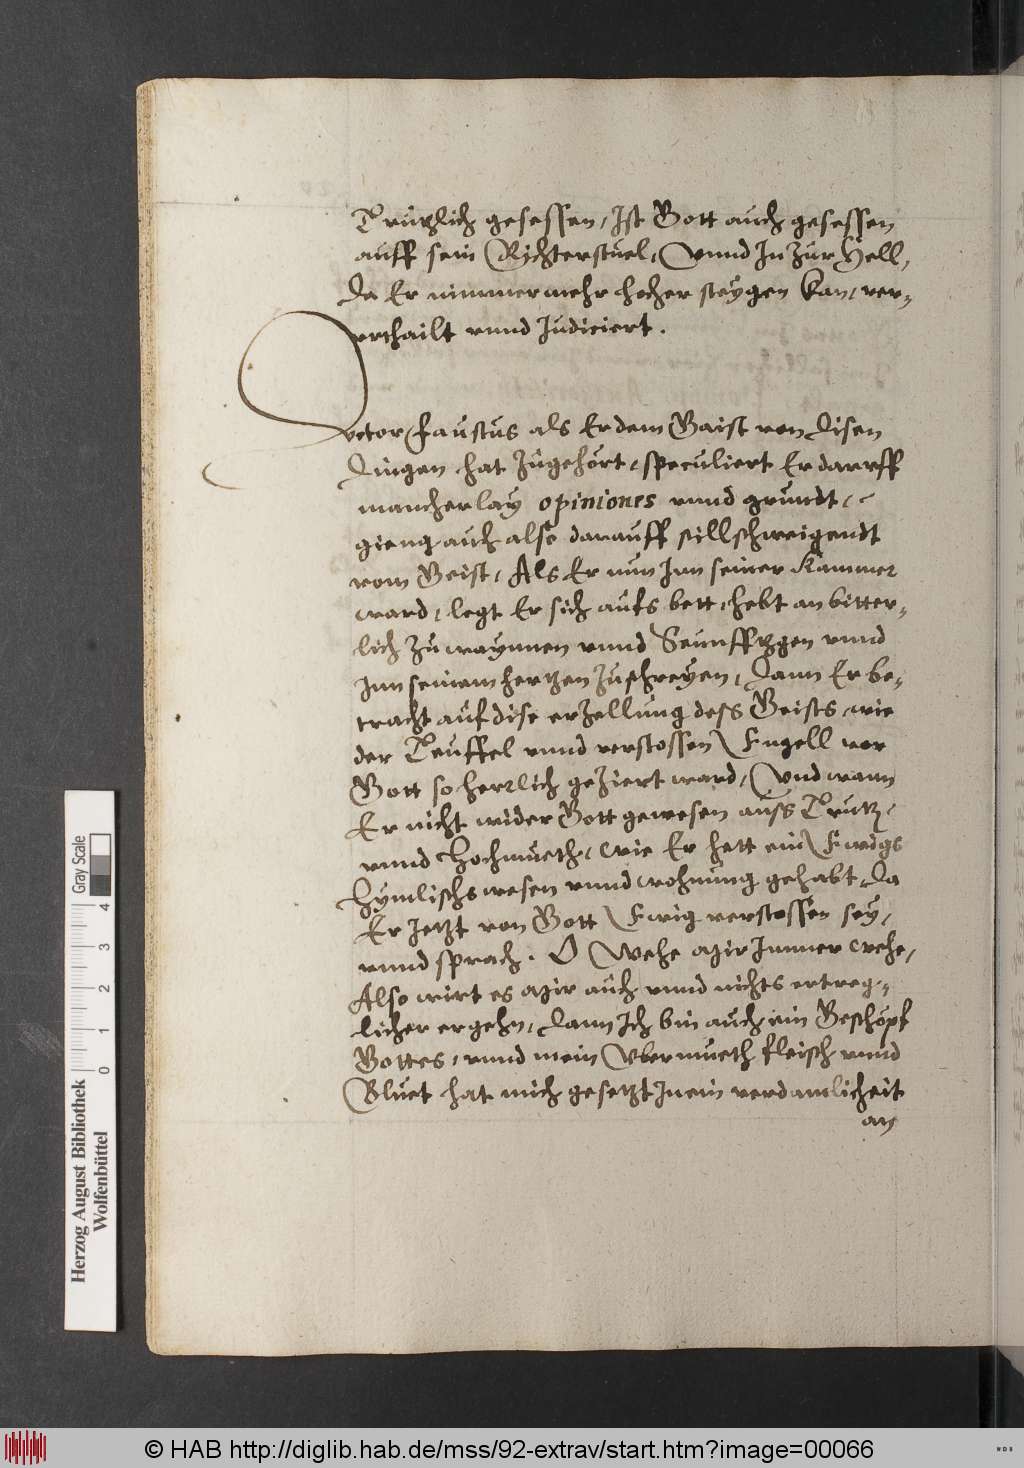 Trützlich gesessen, Ist Gott auch gesessen
auff sein Richterstuel, Vnnd In zur Hell,
da Er nimmermehr hocher steygen kan, ver-
vrthailt vnnd Judiciert.
Doctor Faustus als Er dem Gaist von disen
dingen hat zugehört, speculiert Er darauff
mancherlay opiniones vnnd grundt,
gieng auch also darauff stillschweigendt
vom Geist, Als Er nun Inn seiner Kammer
ward, legt Er sich aufs bett, hebt an bitter-
lich zu waynnen vnnd Seunfftzgen vnnd
Inn seinem hertzen zuschreyen, dann Er be-
tracht auf dise erzellung dess Geists, wie
der Teuffel vnnd verstossen Engell vor
Gott so herrlich geziert ward, Vnd wann
Er nicht wider Gott gewesen auss Trutz,
vnnd Hochmueth, wie Er hett ein Ewigs
Hymlischs wesen vnnd wohnung gehabt, da
Er Jetzt von Gott Ewig verstossen sey,
vnnd sprach. O Wehe Mir Immer wehe,
Also wirt es Mir auch vnnd nichts ertreg-
licher ergehn, dann Ich bin auch ein Geschöpf
Gottes, vnnd mein Vbermueth fleisch vnnd
Bluet hat mich gesetzt In ein verdamlicheit
an
Gray Scale
0 1 2 3 4
Herzog August Bibliothek
Wolfenbüttel
© HAB http://diglib.hab.de/mss/92-extrav/start.htm?image=00066